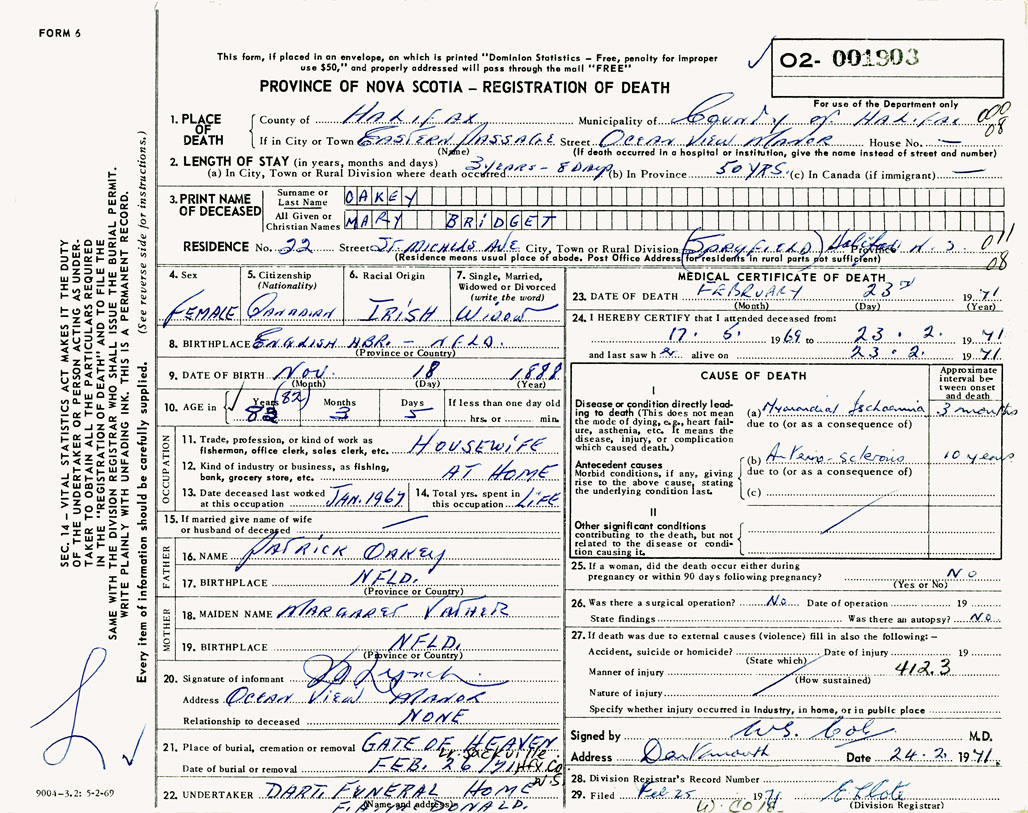 FORM 6
This form, if placed in an envelope, on which is printed "Dominion Statistics – Free, penalty for improper
use $50," and properly addressed will pass through the mail "FREE"
O2- 001903
For use of the Department only
PROVINCE OF NOVA SCOTIA – REGISTRATION OF DEATH
1. PLACE OF DEATH County of HALIFAX Municipality of County of HALIFAX 08
If in City or Town EASTERN PASSAGE Street OCEAN VIEW MANOR House No. —
(Name) (If death occurred in a hospital or institution, give the name instead of street and number)
2. LENGTH OF STAY (in years, months and days)
(a) In City, Town or Rural Division where death occurred 3 YEARS – 8 DAYS (b) In Province 50 YRS. (c) In Canada (if immigrant) —
3. PRINT NAME OF DECEASED
Surname or Last Name OAKEY
All Given or Christian Names MARY BRIDGET
RESIDENCE No. 22 Street ST. MICHELS AVE City, Town or Rural Division (SPRYFIELD) Halifax N. S. 011
(Residence means usual place of abode. Post Office Address for residents in rural parts not sufficient) 08
4. Sex FEMALE
5. Citizenship (Nationality) CANADIAN
6. Racial Origin IRISH
7. Single, Married, Widowed or Divorced (write the word) WIDOW
8. BIRTHPLACE ENGLISH HBR. – NFLD.
(Province or Country)
9. DATE OF BIRTH NOV. 18 1888
(Month) (Day) (Year)
10. AGE in Years (82) Months 3 Days 5 If less than one day old hrs. or min.
OCCUPATION
11. Trade, profession, or kind of work as fisherman, office clerk, sales clerk, etc. HOUSEWIFE
12. Kind of industry or business, as fishing, bank, grocery store, etc. AT HOME
13. Date deceased last worked at this occupation JAN. 1967
14. Total yrs. spent in this occupation LIFE
15. If married give name of wife or husband of deceased —
FATHER
16. NAME PATRICK OAKEY
17. BIRTHPLACE NFLD.
(Province or Country)
MOTHER
18. MAIDEN NAME MARGARET
19. BIRTHPLACE NFLD.
(Province or Country)
20. Signature of informant Lynch
Address OCEAN VIEW MANOR
Relationship to deceased NONE
21. Place of burial, cremation or removal GATE OF HEAVEN
Lr. Sackville
Date of burial or removal FEB. 26/71 Hfx. Co. N.S.
22. UNDERTAKER DART. FUNERAL HOME
(Name and address)
MEDICAL CERTIFICATE OF DEATH
23. DATE OF DEATH FEBRUARY 23rd 1971
(Month) (Day) (Year)
24. I HEREBY CERTIFY that I attended deceased from:
17. 5. 1969 to 23. 2. 1971
and last saw her alive on 23. 2. 1971
CAUSE OF DEATH
Approximate interval between onset and death
I
Disease or condition directly leading to death (This does not mean the mode of dying, e.g., heart failure, asthenia, etc. It means the disease, injury, or complication which caused death.)
(a) Myocardial Ischaemia 3 months
due to (or as a consequence of)
Antecedent causes
Morbid conditions, if any, giving rise to the above cause, stating the underlying condition last.
(b) Arterio-sclerosis 10 years
due to (or as a consequence of)
(c)
II
Other significant conditions contributing to the death, but not related to the disease or condition causing it.
25. If a woman, did the death occur either during pregnancy or within 90 days following pregnancy? NO
(Yes or No)
26. Was there a surgical operation? No Date of operation 19
State findings Was there an autopsy? NO
27. If death was due to external causes (violence) fill in also the following: –
Accident, suicide or homicide? Date of injury 19
(State which)
Manner of injury 412.3
(How sustained)
Nature of injury
Specify whether injury occurred in Industry, in home, or in public place
Signed by M.D.
Address Dartmouth Date 24. 2. 1971
28. Division Registrar's Record Number
29. Filed Feb 25 1971
(Division Registrar)
SEC. 14 – VITAL STATISTICS ACT MAKES IT THE DUTY
OF THE UNDERTAKER OR PERSON ACTING AS UNDERTAKER
TO OBTAIN ALL THE PARTICULARS REQUIRED
IN THE "REGISTRATION OF DEATH" AND TO FILE THE
SAME WITH THE DIVISION REGISTRAR WHO SHALL ISSUE THE BURIAL PERMIT.
WRITE PLAINLY WITH UNFADING INK. THIS IS A PERMANENT RECORD.
Every item of information should be carefully supplied. (See reverse side for instructions.)
9004–3.2: 5-2-69